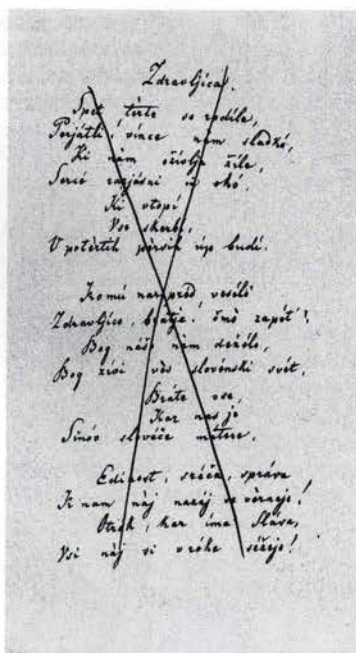 Zdravljica.
Spet tèrte so rodile,
Perjátli, vince nam sladkó,
Ki nam oživlja žile,
Sercé razjásni in okó,
Ki vtopi
Vse skerbi,
V potèrtih persih úp budi.
Komú narpred veselo
Zdravljico, bratje, čmò zapét?
Bog našo nam deželo,
Bog živi vès slovénski svét,
Bráte vse,
Kar nas je
Sinóv slovéče mátere.
Edinost, sréča, správa
K nam nàj nazáj se vèrnejo!
Otrók, kar ima Sláva,
Vsi nàj si v róke séžejo!